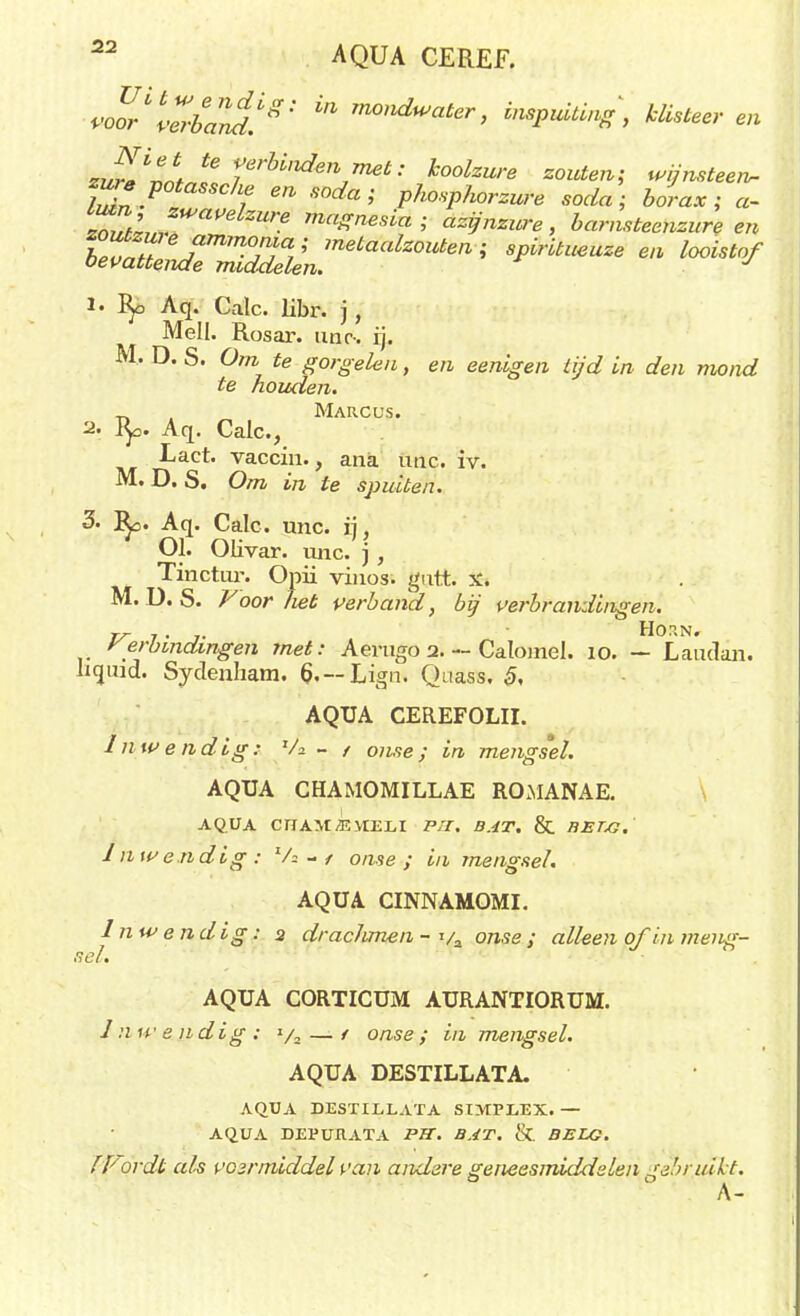 22 AQUA CEREF.
Uitwendig: in mondwater, inspuiting, klisteer en
voor verband.
Niet te verbinden met: koolzure zouten; wijnsteen-
zure potassche en soda; phosphorzure soda; borax; a-
luin; zwavelzure magnesia; azijnzure, barnsteenzure en
zoutzure ammonia; metaalzouten; spiritueuze en looistof
bevattende middelen.
1. ℞ Aq. Calc. libr. j,
Mell. Rosar. unc. ij.
M. D. S. Om te gorgelen, en eenigen tijd in den mond
te houden.
MARCUS.
2. ℞. Aq. Calc.,
Lact. vaccin., ana unc. iv.
M. D. S. Om in te spuiten.
3. ℞. Aq. Calc. unc. ij,
Ol. Olivar. unc. j,
Tinctur. Opii vinos. gutt. x.
M. D. S. Voor het verband, bij verbrandingen.
HORN.
Verbindingen met: Aerugo 2. — Calomel. 10. — Laudan.
liquid. Sydenham. 6. — Lign. Quass. 5.
AQUA CEREFOLII.
Inwendig: 1/2 - 1 onse; in mengsel.
AQUA CHAMOMILLAE ROMANAE.
AQUA CHAMÆMELI PH. BAT. & BELG.
Inwendig: 1/2 - 1 onse; in mengsel.
AQUA CINNAMOMI.
Inwendig: 2 drachmen - 1/2 onse; alleen of in meng-
sel.
AQUA CORTICUM AURANTIORUM.
Inwendig: 1/2 — 1 onse; in mengsel.
AQUA DESTILLATA.
AQUA DESTILLATA SIMPLEX. —
AQUA DEPURATA PH. BAT. & BELG.
Wordt als voermiddel van andere geneesmiddelen gebruikt.
A-